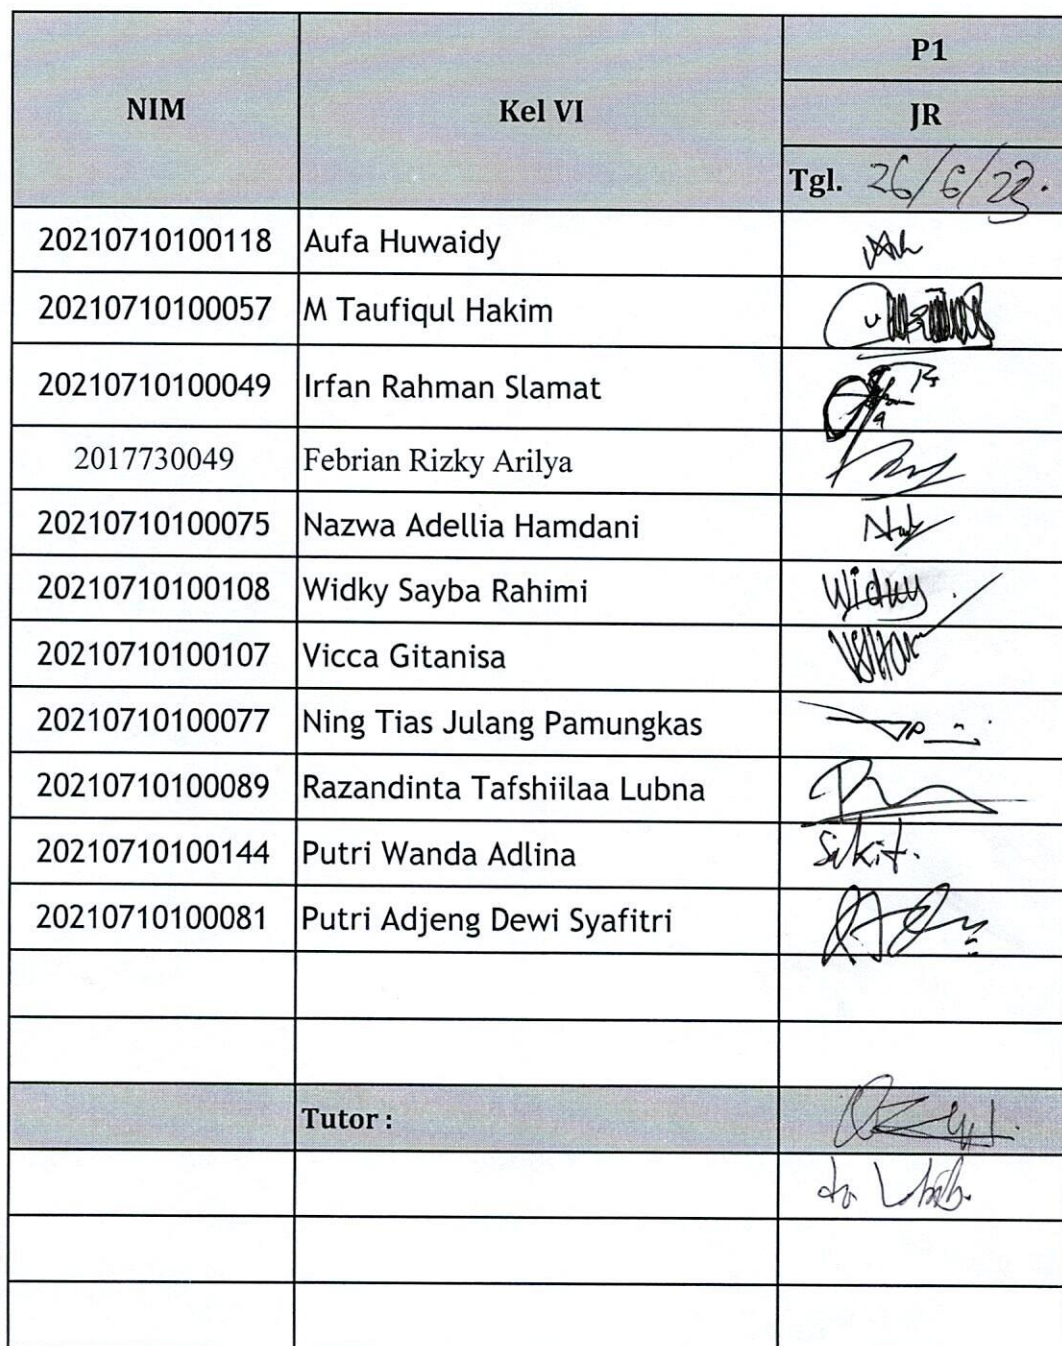 P1
NIM Kel VI JR
Tgl. 26/6/23.
20210710100118 Aufa Huwaidy
20210710100057 M Taufiqul Hakim
20210710100049 Irfan Rahman Slamat
2017730049 Febrian Rizky Arilya
20210710100075 Nazwa Adellia Hamdani
20210710100108 Widky Sayba Rahimi Widky
20210710100107 Vicca Gitanisa
20210710100077 Ning Tias Julang Pamungkas
20210710100089 Razandinta Tafshiilaa Lubna
20210710100144 Putri Wanda Adlina Sakit.
20210710100081 Putri Adjeng Dewi Syafitri
Tutor :